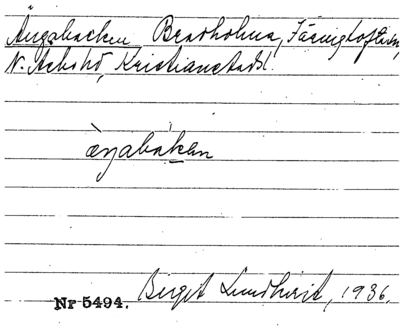 Ängsbacken Bredholma, Färingtoftasn,
N. Åsbo hd, Kristianstads l.
æŋabàkən
Nr 5494. Birgit Lundkvist, 1936.